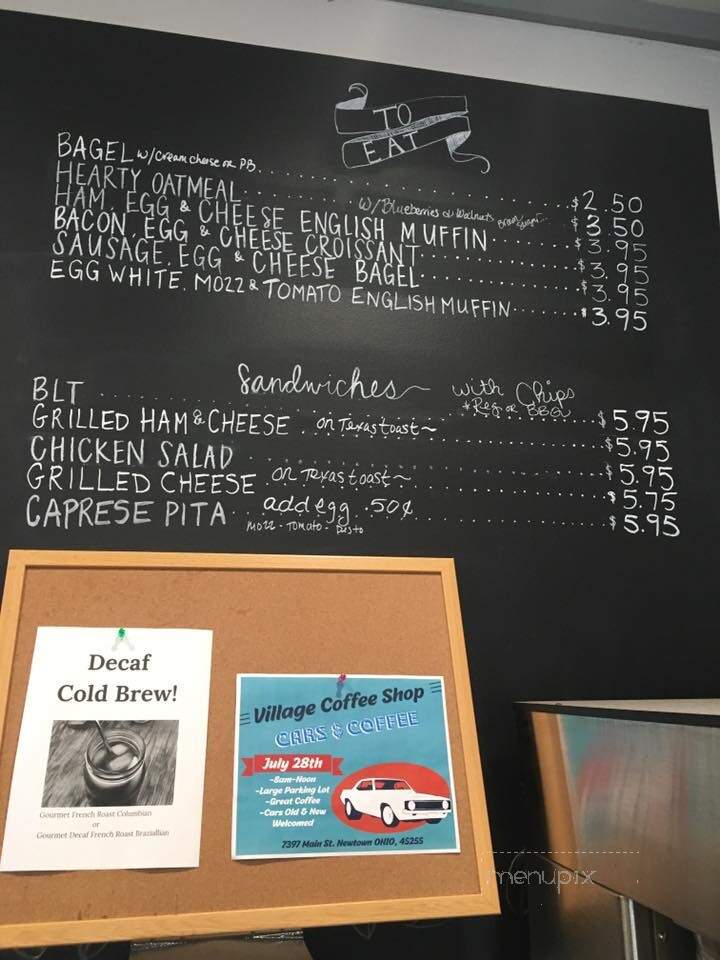 TO
EAT
BAGEL w/ cream cheese or PB $2.50
HEARTY OATMEAL w/ Blueberries or Walnuts Brown Sugar $3.50
HAM, EGG & CHEESE ENGLISH MUFFIN $3.95
BACON, EGG & CHEESE CROISSANT $3.95
SAUSAGE, EGG & CHEESE BAGEL $3.95
EGG WHITE, MOZZ & TOMATO ENGLISH MUFFIN $3.95
Sandwiches with Chips
*Reg or BBQ
BLT $5.95
GRILLED HAM & CHEESE on Texas toast $5.95
CHICKEN SALAD $5.95
GRILLED CHEESE on Texas toast $5.75
CAPRESE PITA add egg .50¢ $5.95
MOZZ - TOMATO - Pesto
Decaf
Cold Brew!
Gourmet French Roast Columbian
or
Gourmet Decaf French Roast Brazillian
Village Coffee Shop
CARS & COFFEE
July 28th
-8am-Noon
-Large Parking Lot
-Great Coffee
-Cars Old & New
Welcomed
7397 Main St. Newtown OHIO, 45255
menupix